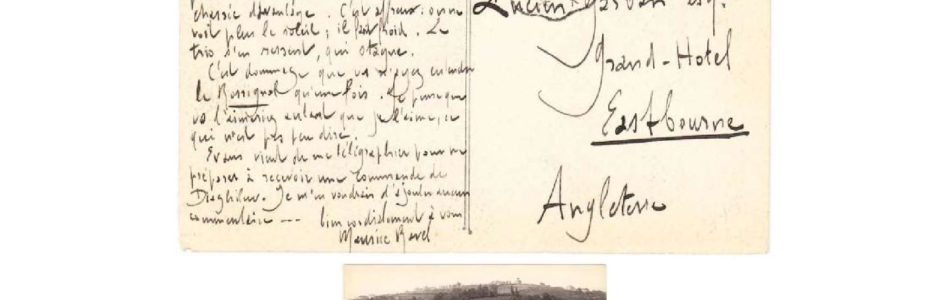 davantage. C'est affreux: on ne
voit plus le soleil; il fait froid. Le
trio s'en ressent, qui stagne.
C'est dommage que vs n'ayez entendu
le Rossignol qu'une fois. Je pense que
vs l'aimeriez autant que je l'aime, ce
qui n'est pas peu dire.
Evans vient de me télégraphier pour me
préparer à recevoir une commande de
Diaghilew. Je m'en voudrais d'ajouter aucun
commentaire --- bien cordialement à vous
Maurice Ravel
Lucien Garban Esq.
Grand-Hotel
Eastbourne
Angleterre